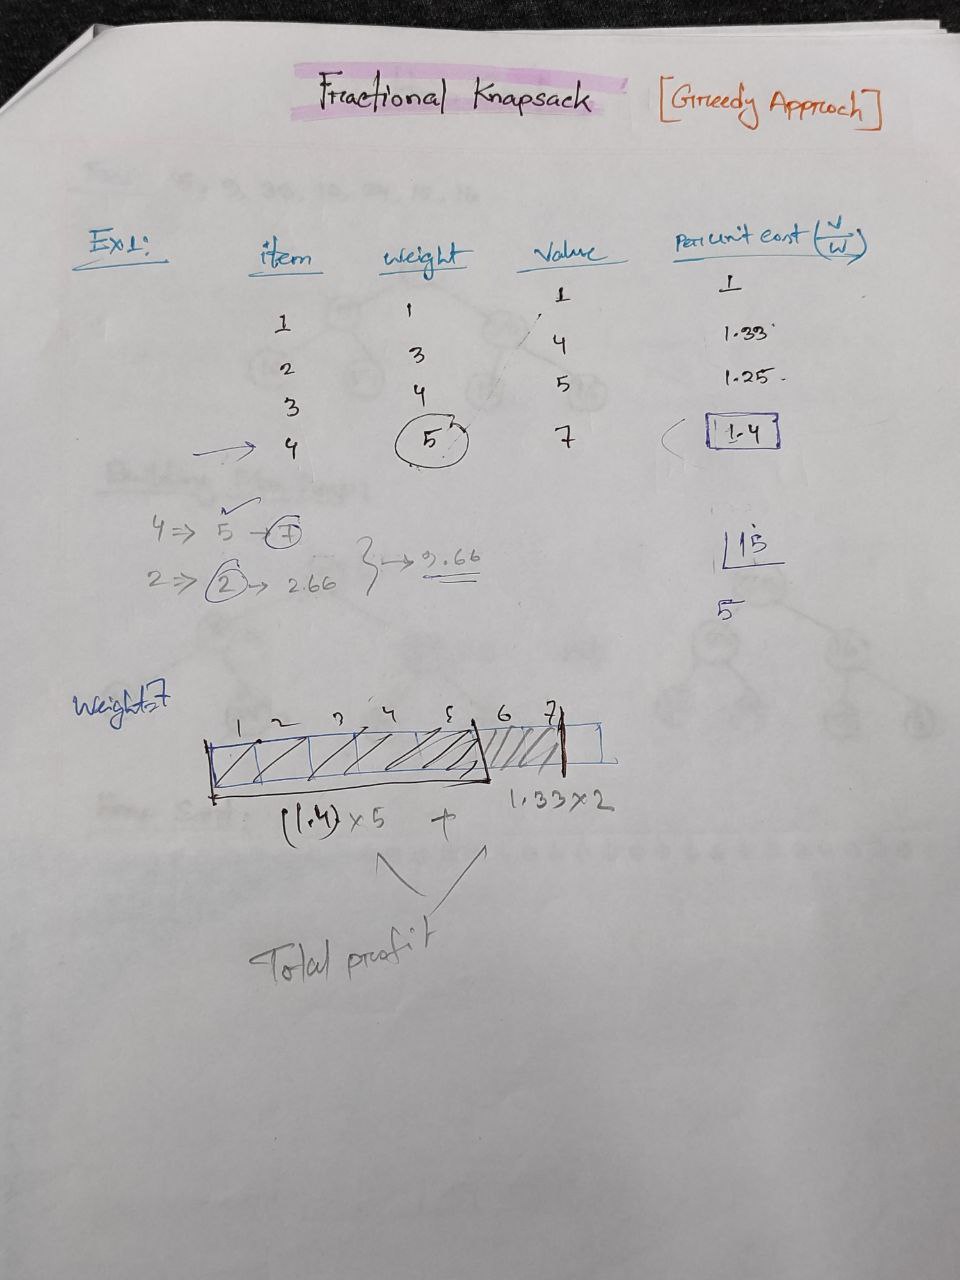 Fractional Knapsack [Greedy Approch]
Ex1: item weight Value Per unit cost (V/W)
1 1 1 1
2 3 4 1.33
3 4 5 1.25
→ 4 5 7 1.4
4 => 5 → 7
2 => 2 → 2.66 } → 9.66
15
5
Weight=7
1 2 3 4 5 6 7
(1.4) x 5 + 1.33 x 2
Total profit